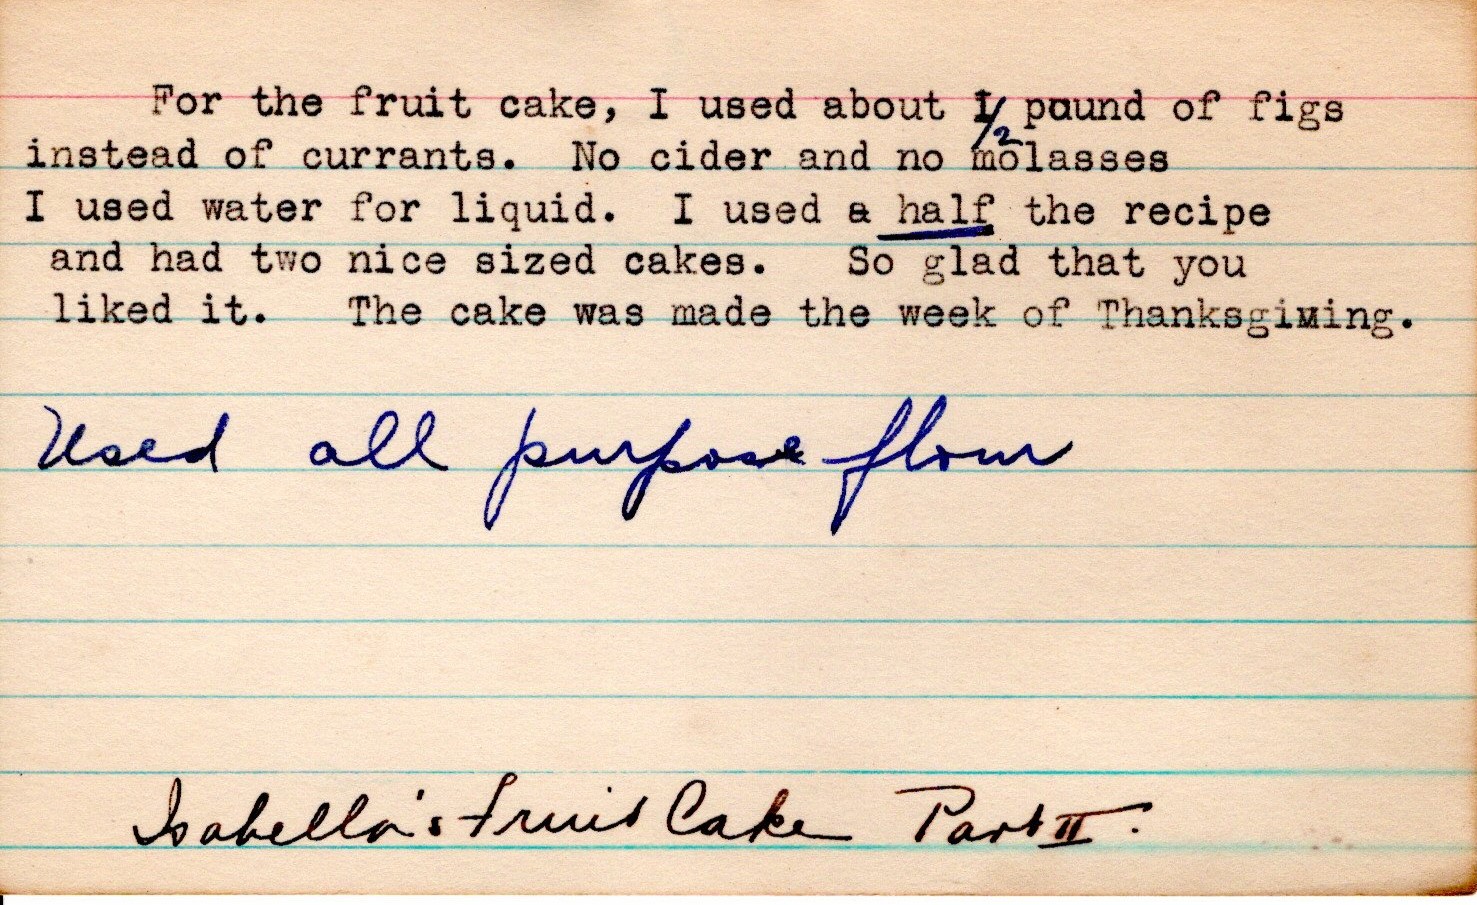 For the fruit cake, I used about 1/2 paund of figs
instead of currants. No cider and no molasses
I used water for liquid. I used a half the recipe
and had two nice sized cakes. So glad that you
liked it. The cake was made the week of Thanksgiming.
Used all purpose flour
Isabella's Fruit Cake Part II.